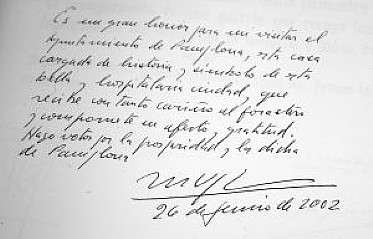 Es un gran honor para mí visitar el
Ayuntamiento de Pamplona, esta casa
cargada de historia y símbolo de esta
bella y hospitalaria ciudad, que
recibe con tanto cariño al forastero
y compromete su afecto y gratitud.
Hago votos por la prosperidad y la dicha
de Pamplona
26 de junio de 2002